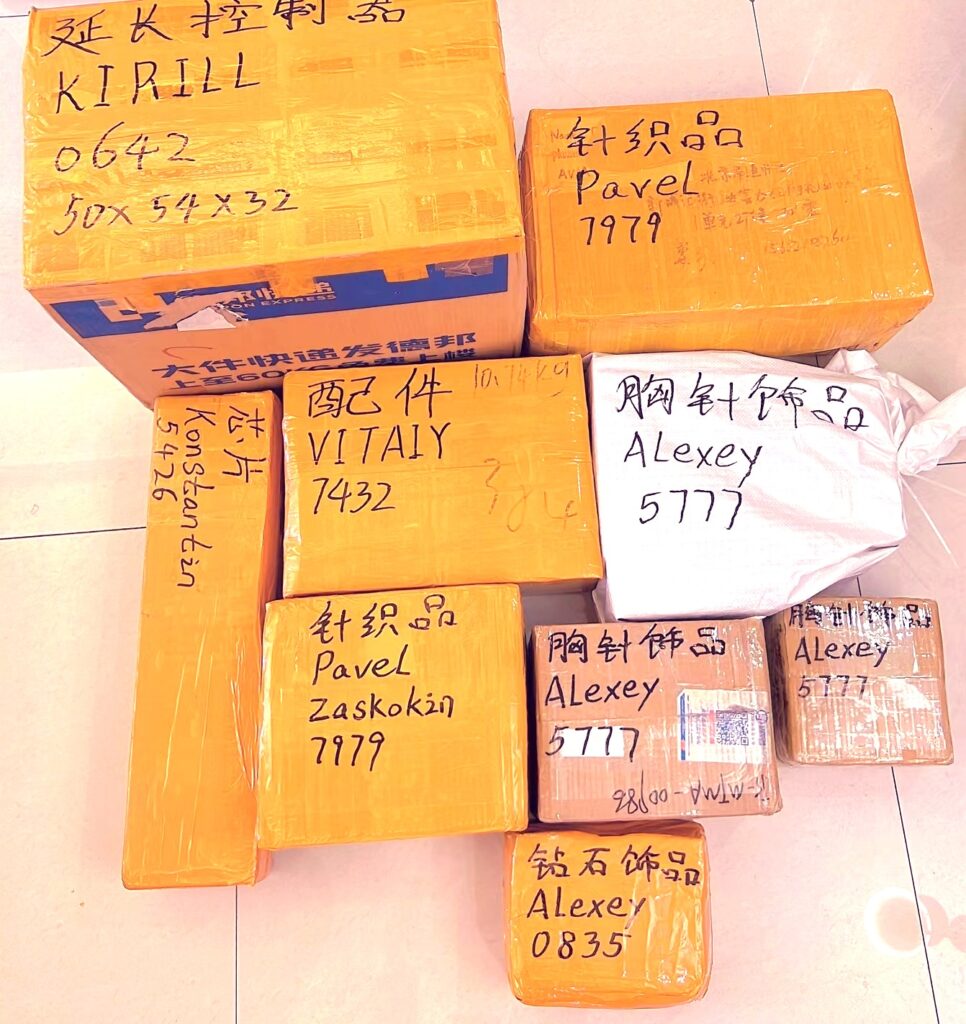 延长控制器
KIRILL
0642
50x54x32
EXPRESS
大件快递发德邦
针织品
Pavel
7979
芯片
Konstantin
5426
配件
10.74kg
VITAIY
7432
胸针饰品
ALexey
5777
针织品
PaveL
Zaskokin
7979
胸针饰品
ALexey
5777
胸针饰品
ALexey
5777
钻石饰品
ALexey
0835